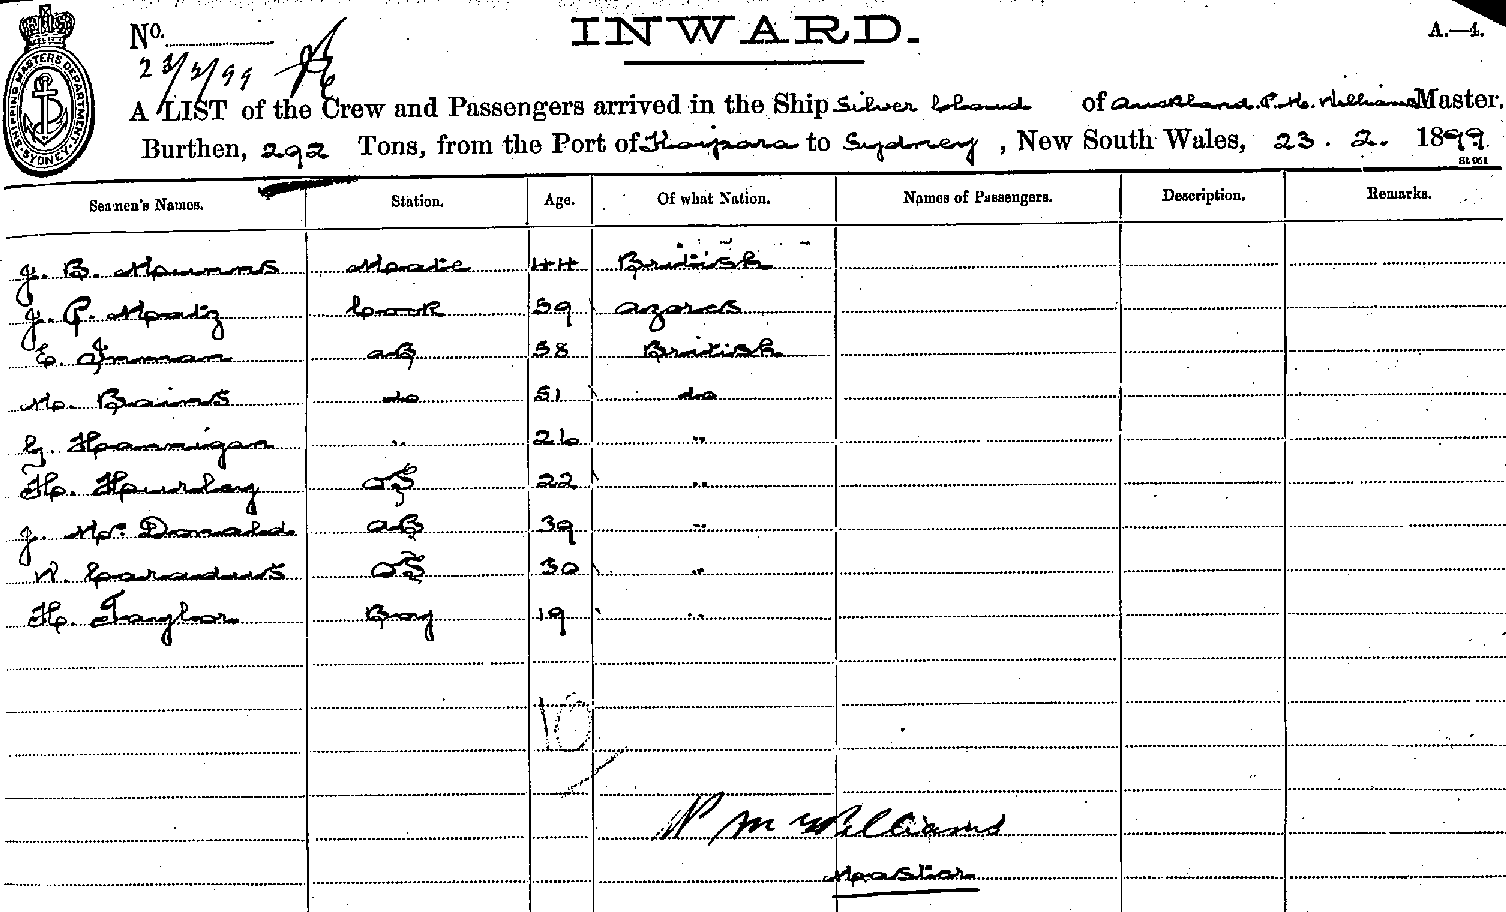 INWARD.
A.—4.
No.
23/2/99
SHIPPING MASTERS DEPARTMENT SYDNEY
A LIST of the Crew and Passengers arrived in the Ship Silver Cloud of Auckland. P. M. Williams Master,
Burthen, 292 Tons, from the Port of Kaipara to Sydney, New South Wales, 23. 2. 1899
Seamen's Names. Station. Age. Of what Nation. Names of Passengers. Description. Remarks.
J. B. Mate 44 British
J. P. Cook 59 Azores
E. Inman AB 58 British
M. Bains do 51 do
G. Hannigan " 26 "
H. Hurley OS 22 "
J. Mc Donald AB 39 "
W. Caradus OS 30 "
H. Taylor Boy 19 "
10
P M Williams
Master